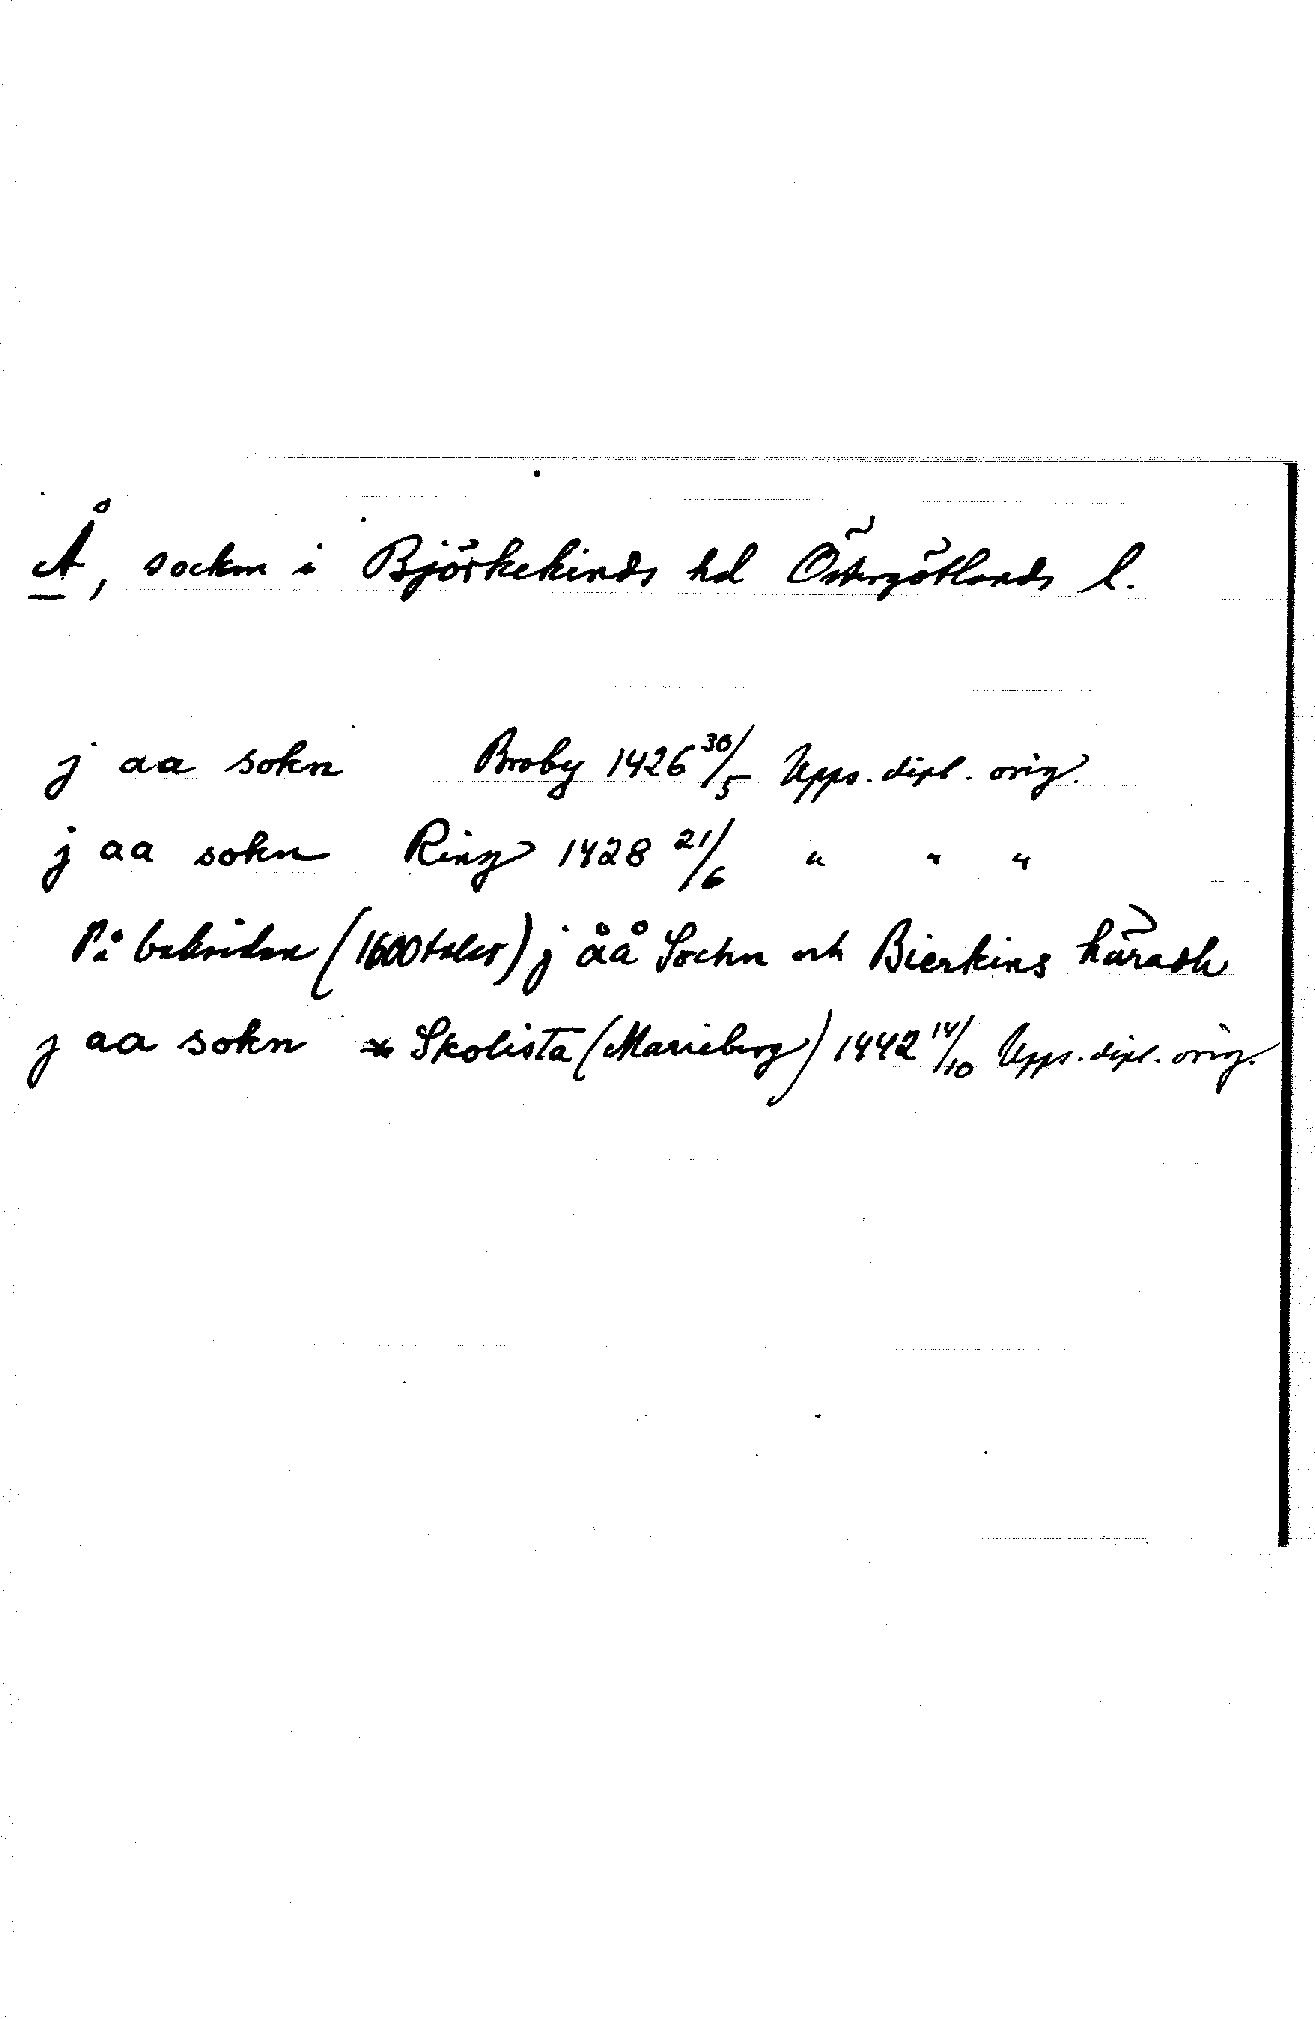 Å, socken i Björkekinds hd Östergötlands l.
j aa sokn Broby 1426 30/5 Upps. dipl. orig.
j aa sokn Ring 1428 21/6 " " "
På baksidan (1600talet) j åå Sochn och Bierkins häradh
j aa sokn * Skolista (Marieberg) 1442 14/10 Upps. dipl. orig.